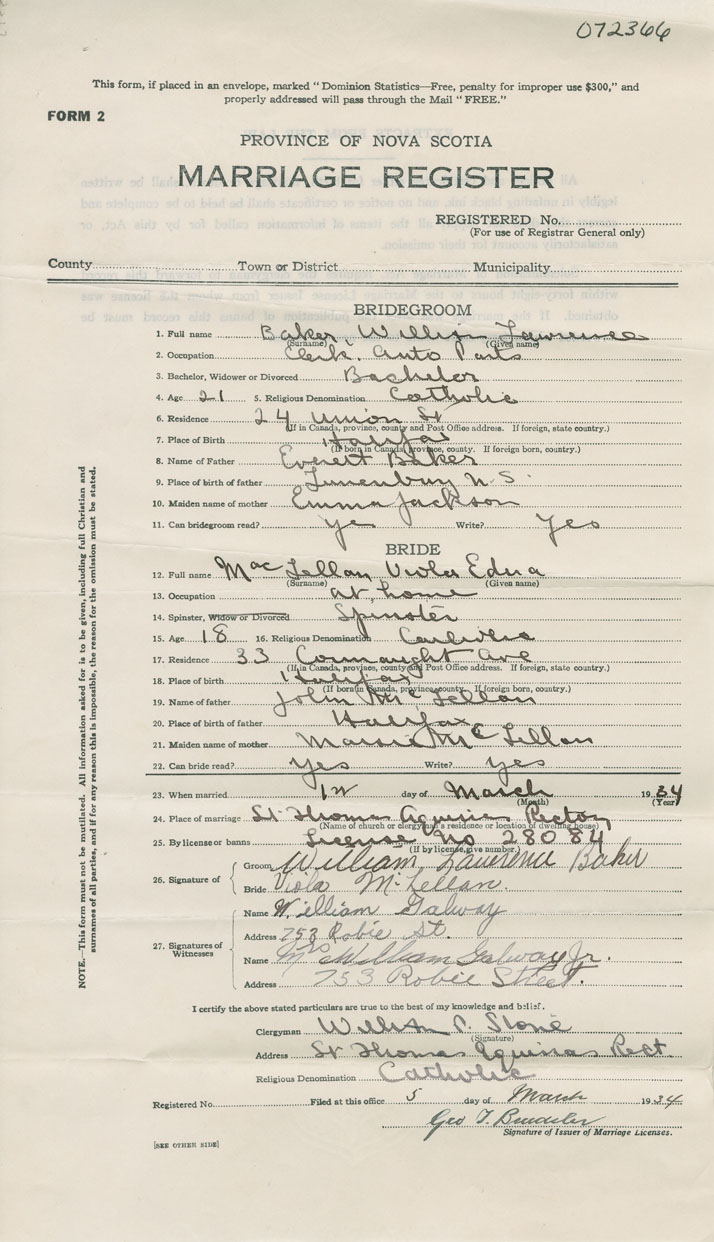 072366
This form, if placed in an envelope, marked "Dominion Statistics—Free, penalty for improper use $300," and
properly addressed will pass through the Mail "FREE."
FORM 2
PROVINCE OF NOVA SCOTIA
MARRIAGE REGISTER
REGISTERED No.
(For use of Registrar General only)
County Town or District Municipality
BRIDEGROOM
1. Full name Baker William Lawrence
(Surname) (Given name)
2. Occupation Clerk. Auto Parts
3. Bachelor, Widower or Divorced Bachelor
4. Age 21 5. Religious Denomination Catholic
6. Residence 24 Union St
(If in Canada, province, county and Post Office address. If foreign, state country.)
7. Place of Birth Halifax
(If born in Canada, province, county. If foreign born, country.)
8. Name of Father Everett Baker
9. Place of birth of father Lunenburg N.S.
10. Maiden name of mother Emma Jackson
11. Can bridegroom read? Yes Write? Yes
BRIDE
12. Full name MacLellan Viola Edna
(Surname) (Given name)
13. Occupation at home
14. Spinster, Widow or Divorced Spinster
15. Age 18 16. Religious Denomination Catholic
17. Residence 33 Connaught Ave
(If in Canada, province, county and Post Office address. If foreign, state country.)
18. Place of birth Halifax
(If born in Canada, province, county. If foreign born, country.)
19. Name of father John McLellan
20. Place of birth of father Halifax
21. Maiden name of mother McLellan
22. Can bride read? Yes Write? Yes
23. When married 1st day of March 1934
(Month) (Year)
24. Place of marriage St Thomas Aquinas Rectory
(Name of church or clergyman's residence or location of dwelling house)
25. By license or banns License No 28084
(If by license, give number)
26. Signature of
Groom William Lawrence Baker
Bride Viola McLellan.
27. Signatures of Witnesses
Name William Galway
Address 753 Robie St.
Name Mrs William Galway Jr.
Address 753 Robie Street.
I certify the above stated particulars are true to the best of my knowledge and belief.
Clergyman William P. Stone
(Signature)
Address St Thomas Aquinas Rect
Religious Denomination Catholic
Registered No. Filed at this office 5 day of March 1934
Geo T.
Signature of Issuer of Marriage Licenses.
[SEE OTHER SIDE]
NOTE.—This form must not be mutilated. All information asked for is to be given, including full Christian and
surnames of all parties, and if for any reason this is impossible, the reason for the omission must be stated.